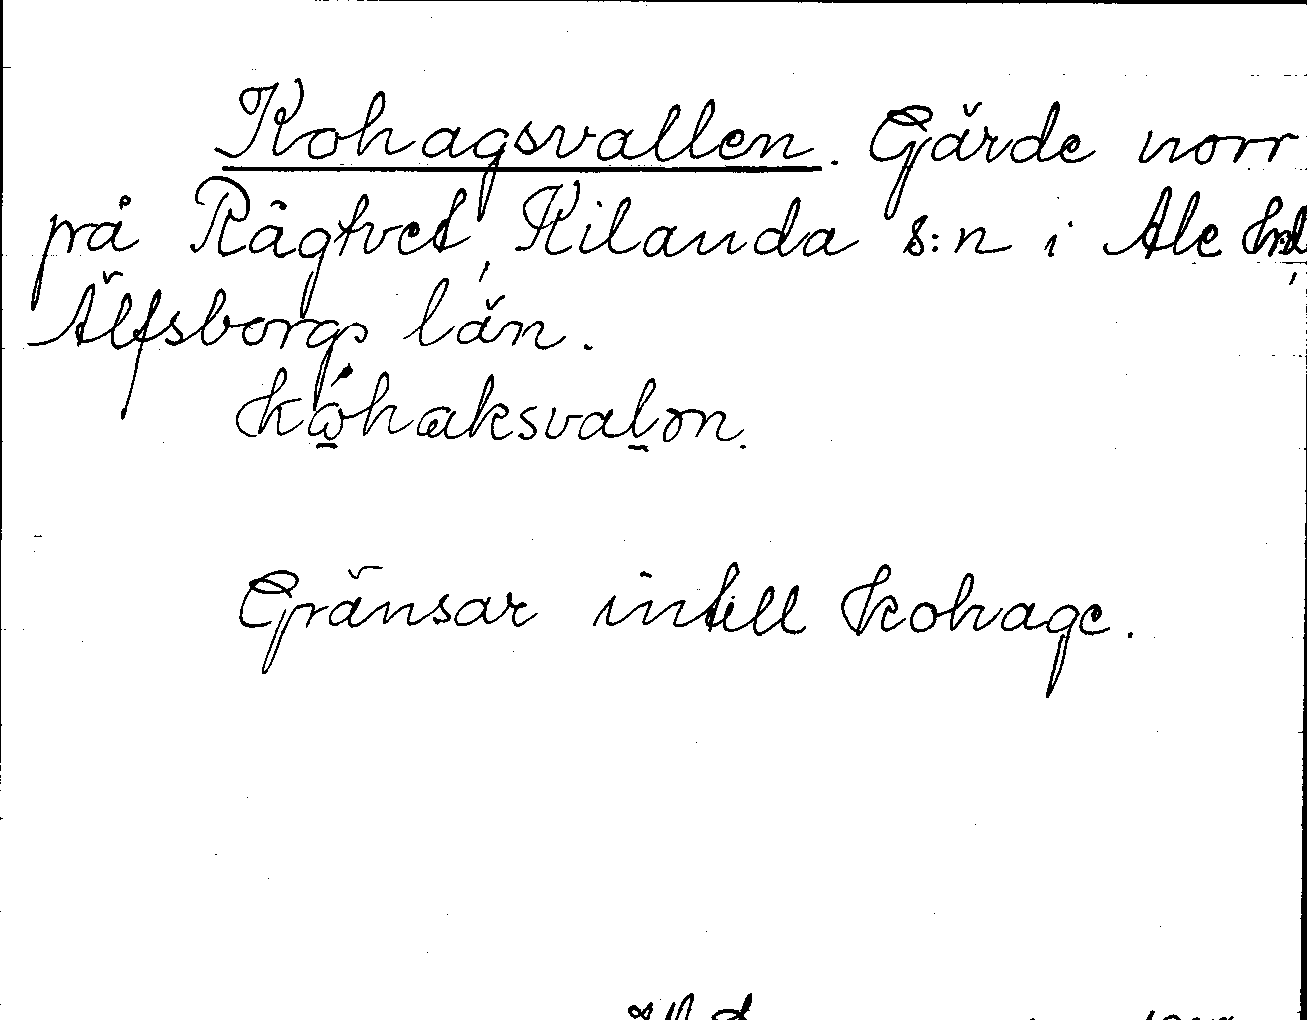 Kohagsvallen. Gärde norr
på Rågtvet, Kilanda s:n i Ale hd,
Älfsborgs län.
kŵhaksvalɷn.
Gränsar intill kohage.